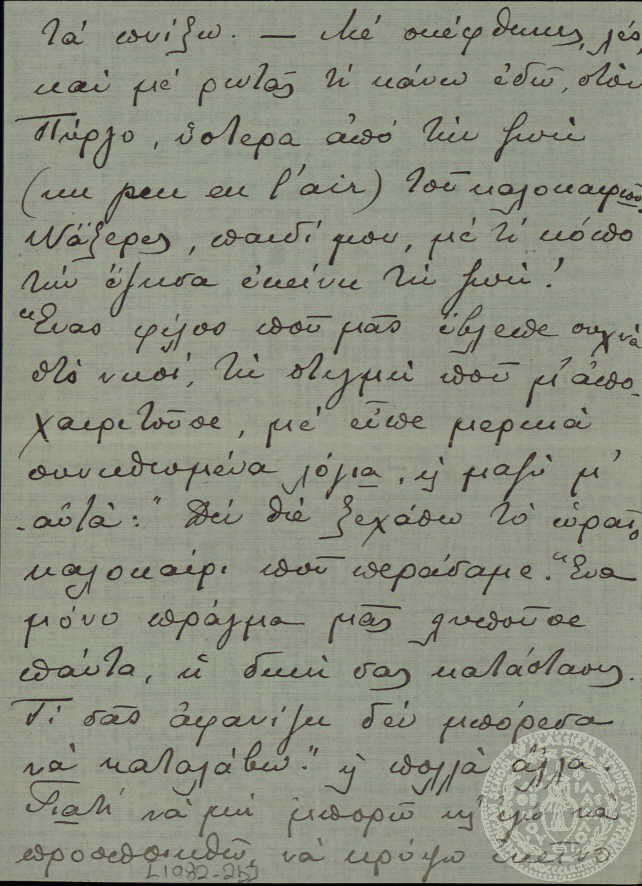 τά πνίξω. — Μέ σκέφθηκες, λές,
καί μέ ρωτᾶς τί κάνω ἐδῶ, στόν
Πύργο, ὕστερα ἀπό τήν ζωή
(un peu en l'air) τοῦ καλοκαιριοῦ.
Νἄξερες, παιδί μου, μέ τί κόπο
τήν ἔζησα ἐκείνη τή ζωή!
Ἕνας φίλος ποῦ μᾶς ἔβλεπε συχνά
στό νησί, τή στιγμή ποῦ μ' ἀπο-
χαιρετοῦσε, μέ εἶπε μερικά
συνηθισμένα λόγια, κ' μαζύ μ'
αὐτά: "Δέν θά ξεχάσω τό ὡραῖο
καλοκαίρι ποῦ περάσαμε. Ἕνα
μόνο πράγμα μᾶς λυποῦσε
πάντα, ἡ δική σας κατάστασις.
Τί σᾶς ἀφανίζει δέν μπόρεσα
νά καταλάβω." κ' πολλά ἄλλα.
Γιατί νά μή μπορῶ κ' ἐγώ νά
προσποιηθῶ, νά κρύψω ἐκεῖνο